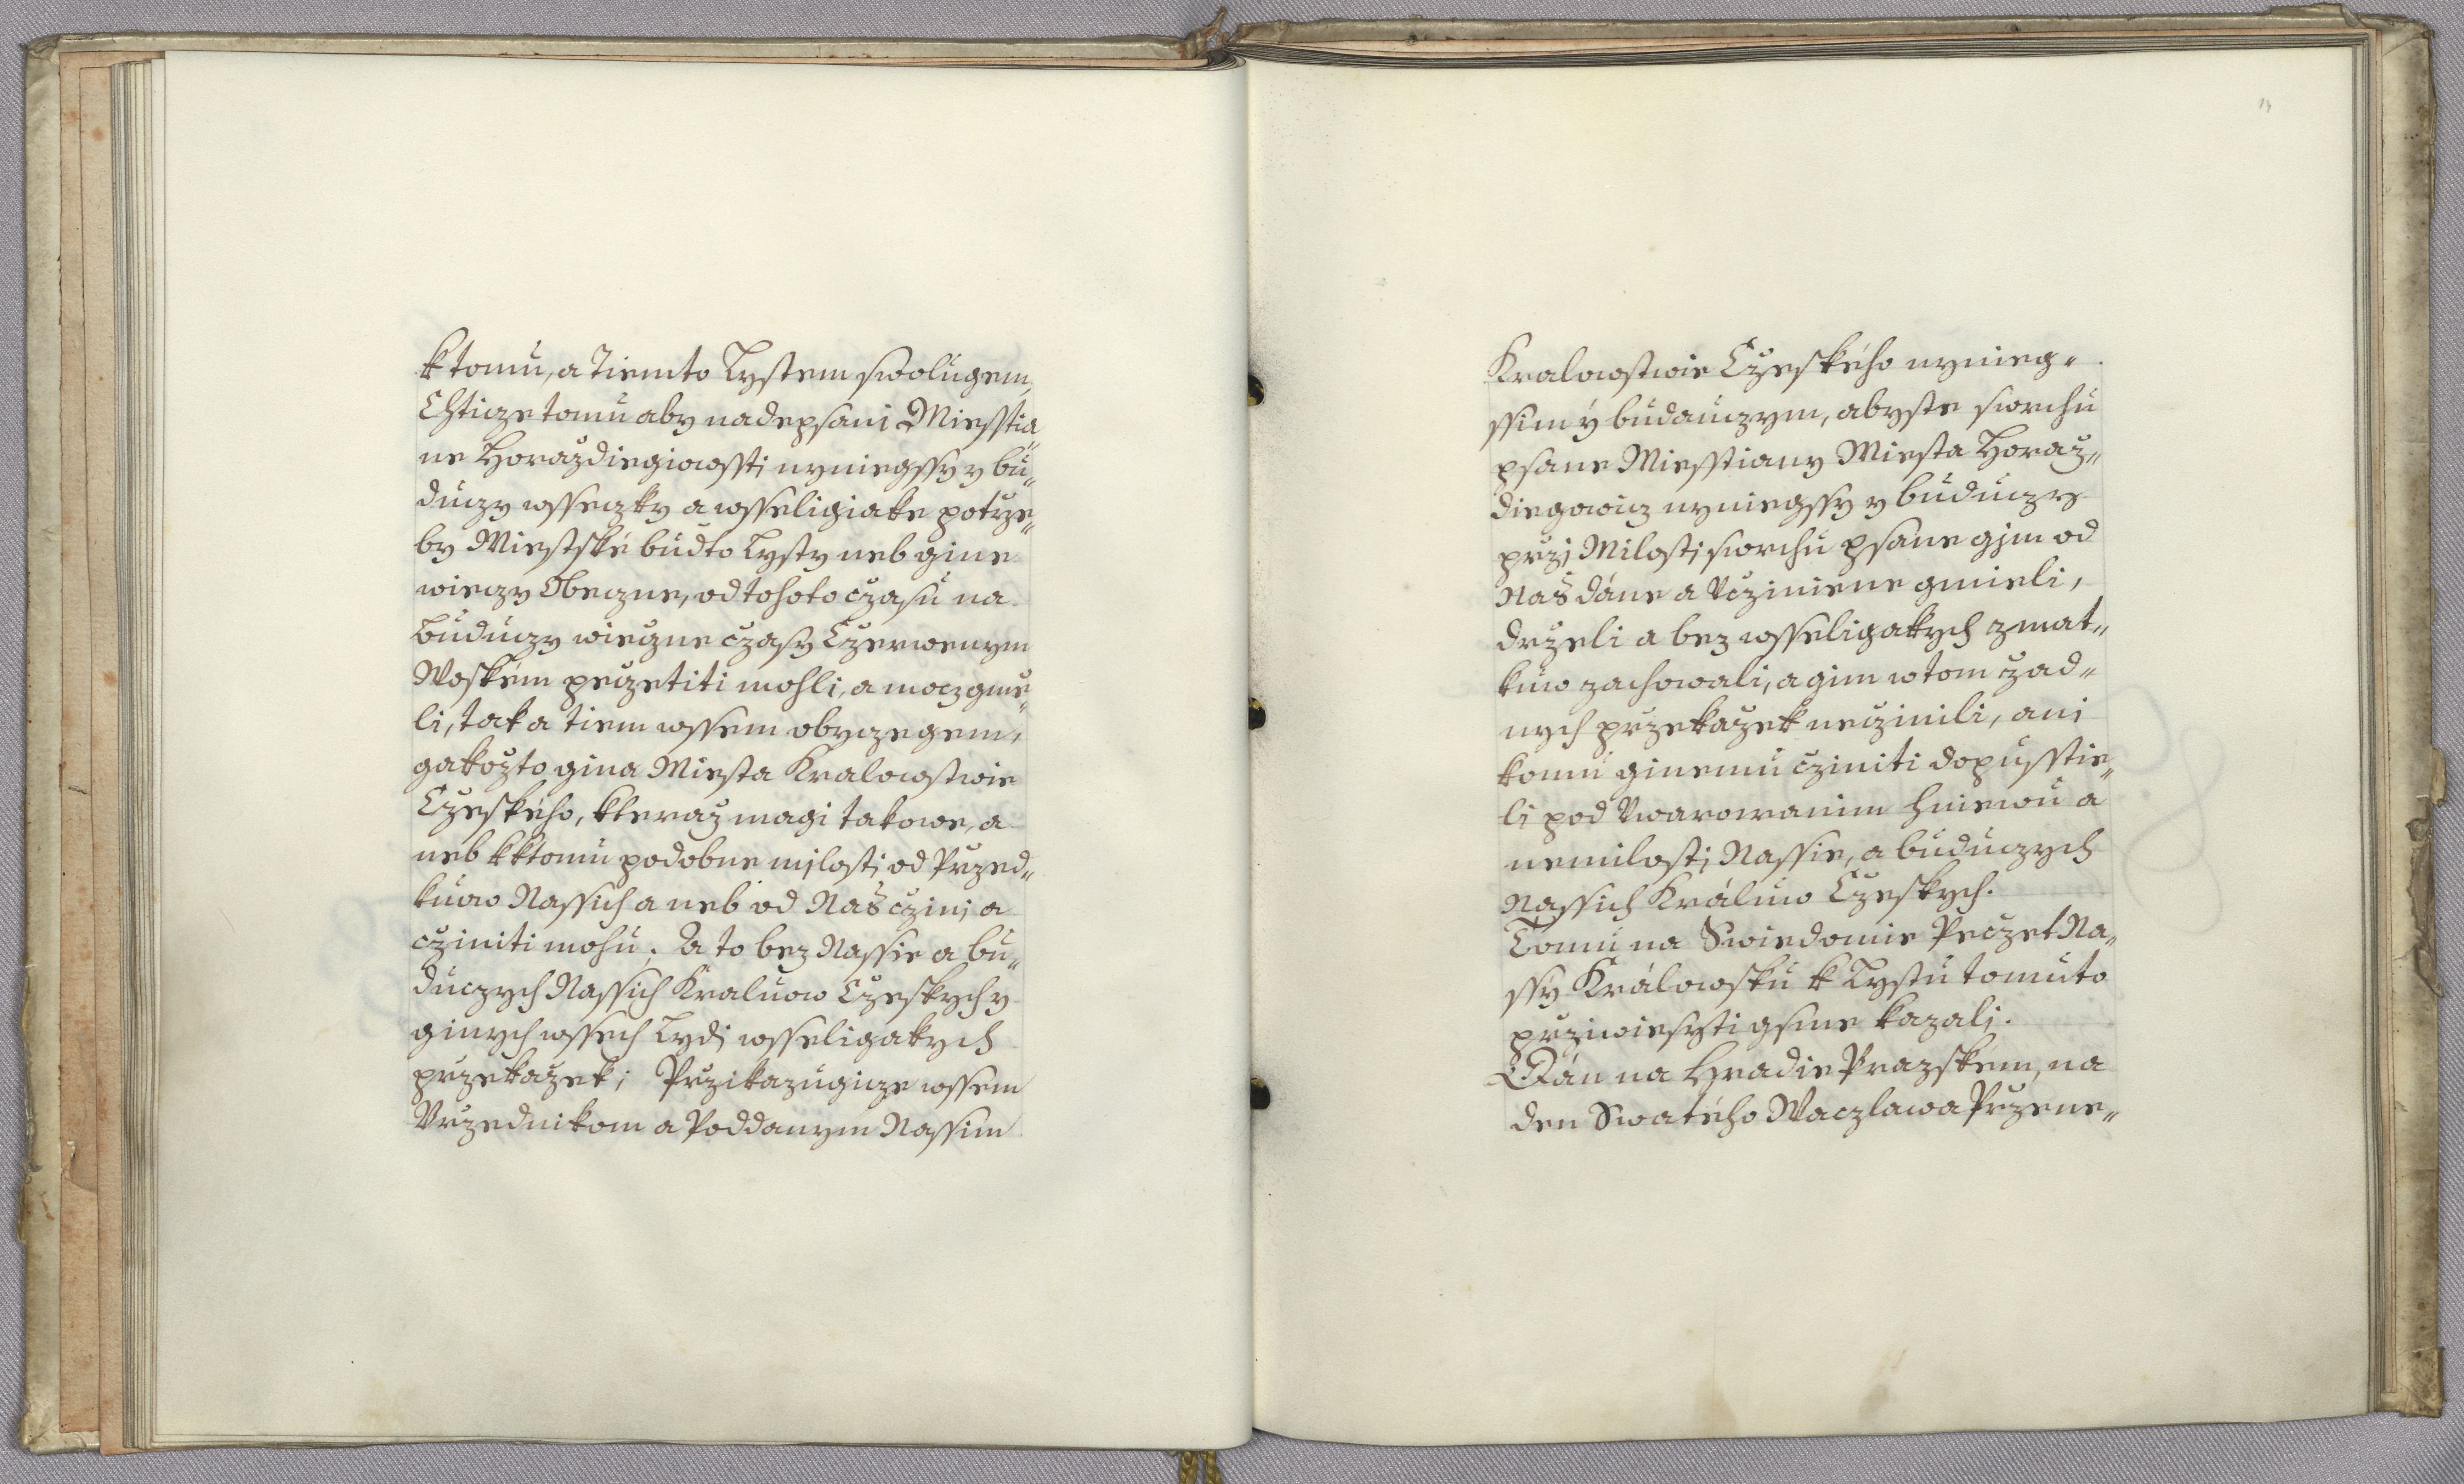 k tomu, a Tiemto Lystem swolugem,
Chticze tomu aby nadepsani Miesstia„
ne Horażdiegiowssti nyniegssy y bu„
duczy wsseczky a wsseligiake potrze„
by Miestské budto Lysty neb gine
wieczy Obeczne, od tohoto czasu na
buduczy wieczne czasy Czerwenym
Woském peczetiti mohli, a mocz gmie„
li, tak a tiem wssem obyczegem,
gakożto gina Miesta Kralowstwie
Czeského, kteraż magi takowe, a
neb kktomu podobne milosti od Przed„
kuow Nassich a neb od Nas czini a
cziniti mohu; A to bez Nassie a bu„
duczych Nassich Kraluow Czeskych y
ginych wssech Lydi wsseligakych
przekażek; Przikazugicze wssem
Vrzednikom a Poddanym Nassim
14
Kralowstwie Czeského nynieg„
ssim ÿ budauczym, abyste swrchu
psane Miesstiany Miesta Horaż„
diegowicz nyniegssy y buduczy
przi Milosti swrchu psane gim od
Nas dáne a Vcziniene gmieli,
drżeli a bez wsseligakych zmat„
kuw zachowali, a gim w tom żad„
nych przekażek neczinili, ani
komu ginemu cziniti dopusstie„
li pod Vwarowanim hniewu a
nemilosti Nassie, a buduczych
Nassich Králuw Czeskych.
Tomu na Swiedomie Peczet Na„
ssy Králowsku k Lystu tomuto
prziwiesyti gsme kazali.
Dán na Hradie Prazském, na
den Swatého Waczlawa Przene„